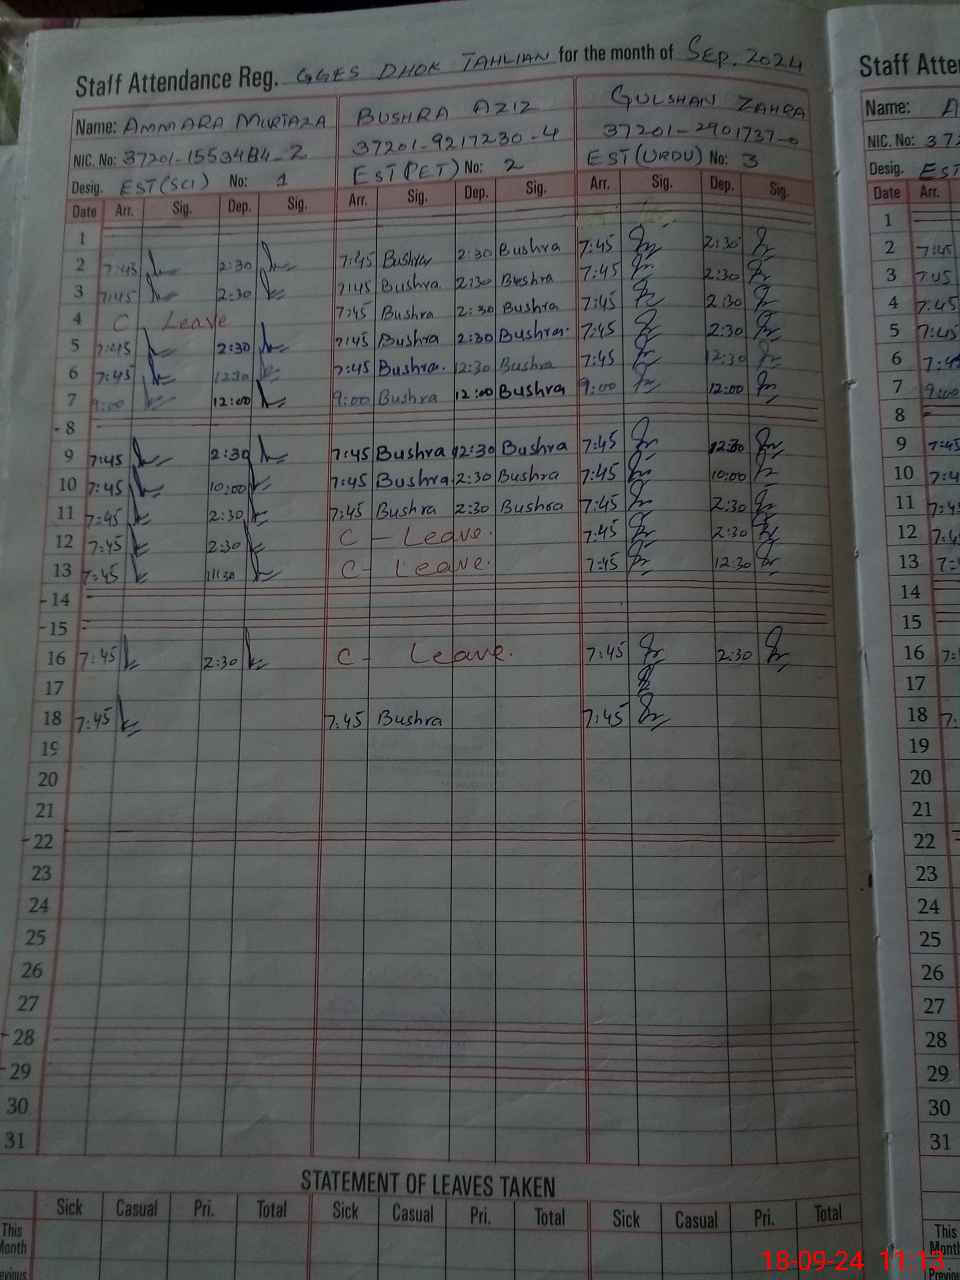 Staff Attendance Reg. GGES DHOK TAHLIAN for the month of SEP. 2024
Name: AMMARA MURTAZA BUSHRA AZIZ GULSHAN ZAHRA
NIC. No: 37201-1553484-2 37201-9217230-4 37201-2901737-0
Desig. EST(SCI) No: 1 EST(PET) No: 2 EST(URDU) No: 3
Date Arr. Sig. Dep. Sig. Arr. Sig. Dep. Sig. Arr. Sig. Dep. Sig.
1
2 7:45 2:30 7:45 Bushra 2:30 Bushra 7:45 2:30
3 7:45 2:30 7:45 Bushra 2:30 Bushra 7:45 2:30
4 C Leave 7:45 Bushra 2:30 Bushra 7:45 2:30
5 7:45 2:30 7:45 Bushra 2:30 Bushra. 7:45 2:30
6 7:45 12:30 7:45 Bushra. 12:30 Bushra 7:45 12:30
7 9:00 12:00 9:00 Bushra 12:00 Bushra 9:00 12:00
- 8
9 7:45 2:30 7:45 Bushra 2:30 Bushra 7:45
10 7:45 10:00 7:45 Bushra 2:30 Bushra 7:45 10:00
11 7:45 2:30 7:45 Bushra 2:30 Bushra 7:45 2:30
12 7:45 2:30 C - Leave. 7:45 2:30
13 7:45 11:30 C - Leave. 7:45 12:30
- 14
- 15
16 7:45 2:30 C - Leave. 7:45 2:30
17
18 7:45 7:45 Bushra 7:45
19
20
21
- 22
23
24
25
26
27
- 28
- 29
30
31
STATEMENT OF LEAVES TAKEN
Sick Casual Pri. Total Sick Casual Pri. Total Sick Casual Pri. Total
This
Month
Staff Atte
Name: A
NIC. No: 37
Desig. EST
Date Arr.
1
2 7:45
3 7:45
4 7:45
5 7:45
6 7:4
7 9:00
8
9 7:45
10 7:4
11 7:4
12 7:4
13 7:
14
15
16 7:
17
18 7:
19
20
21
22
23
24
25
26
27
28
29
30
31
This
Month
18-09-24 11:13